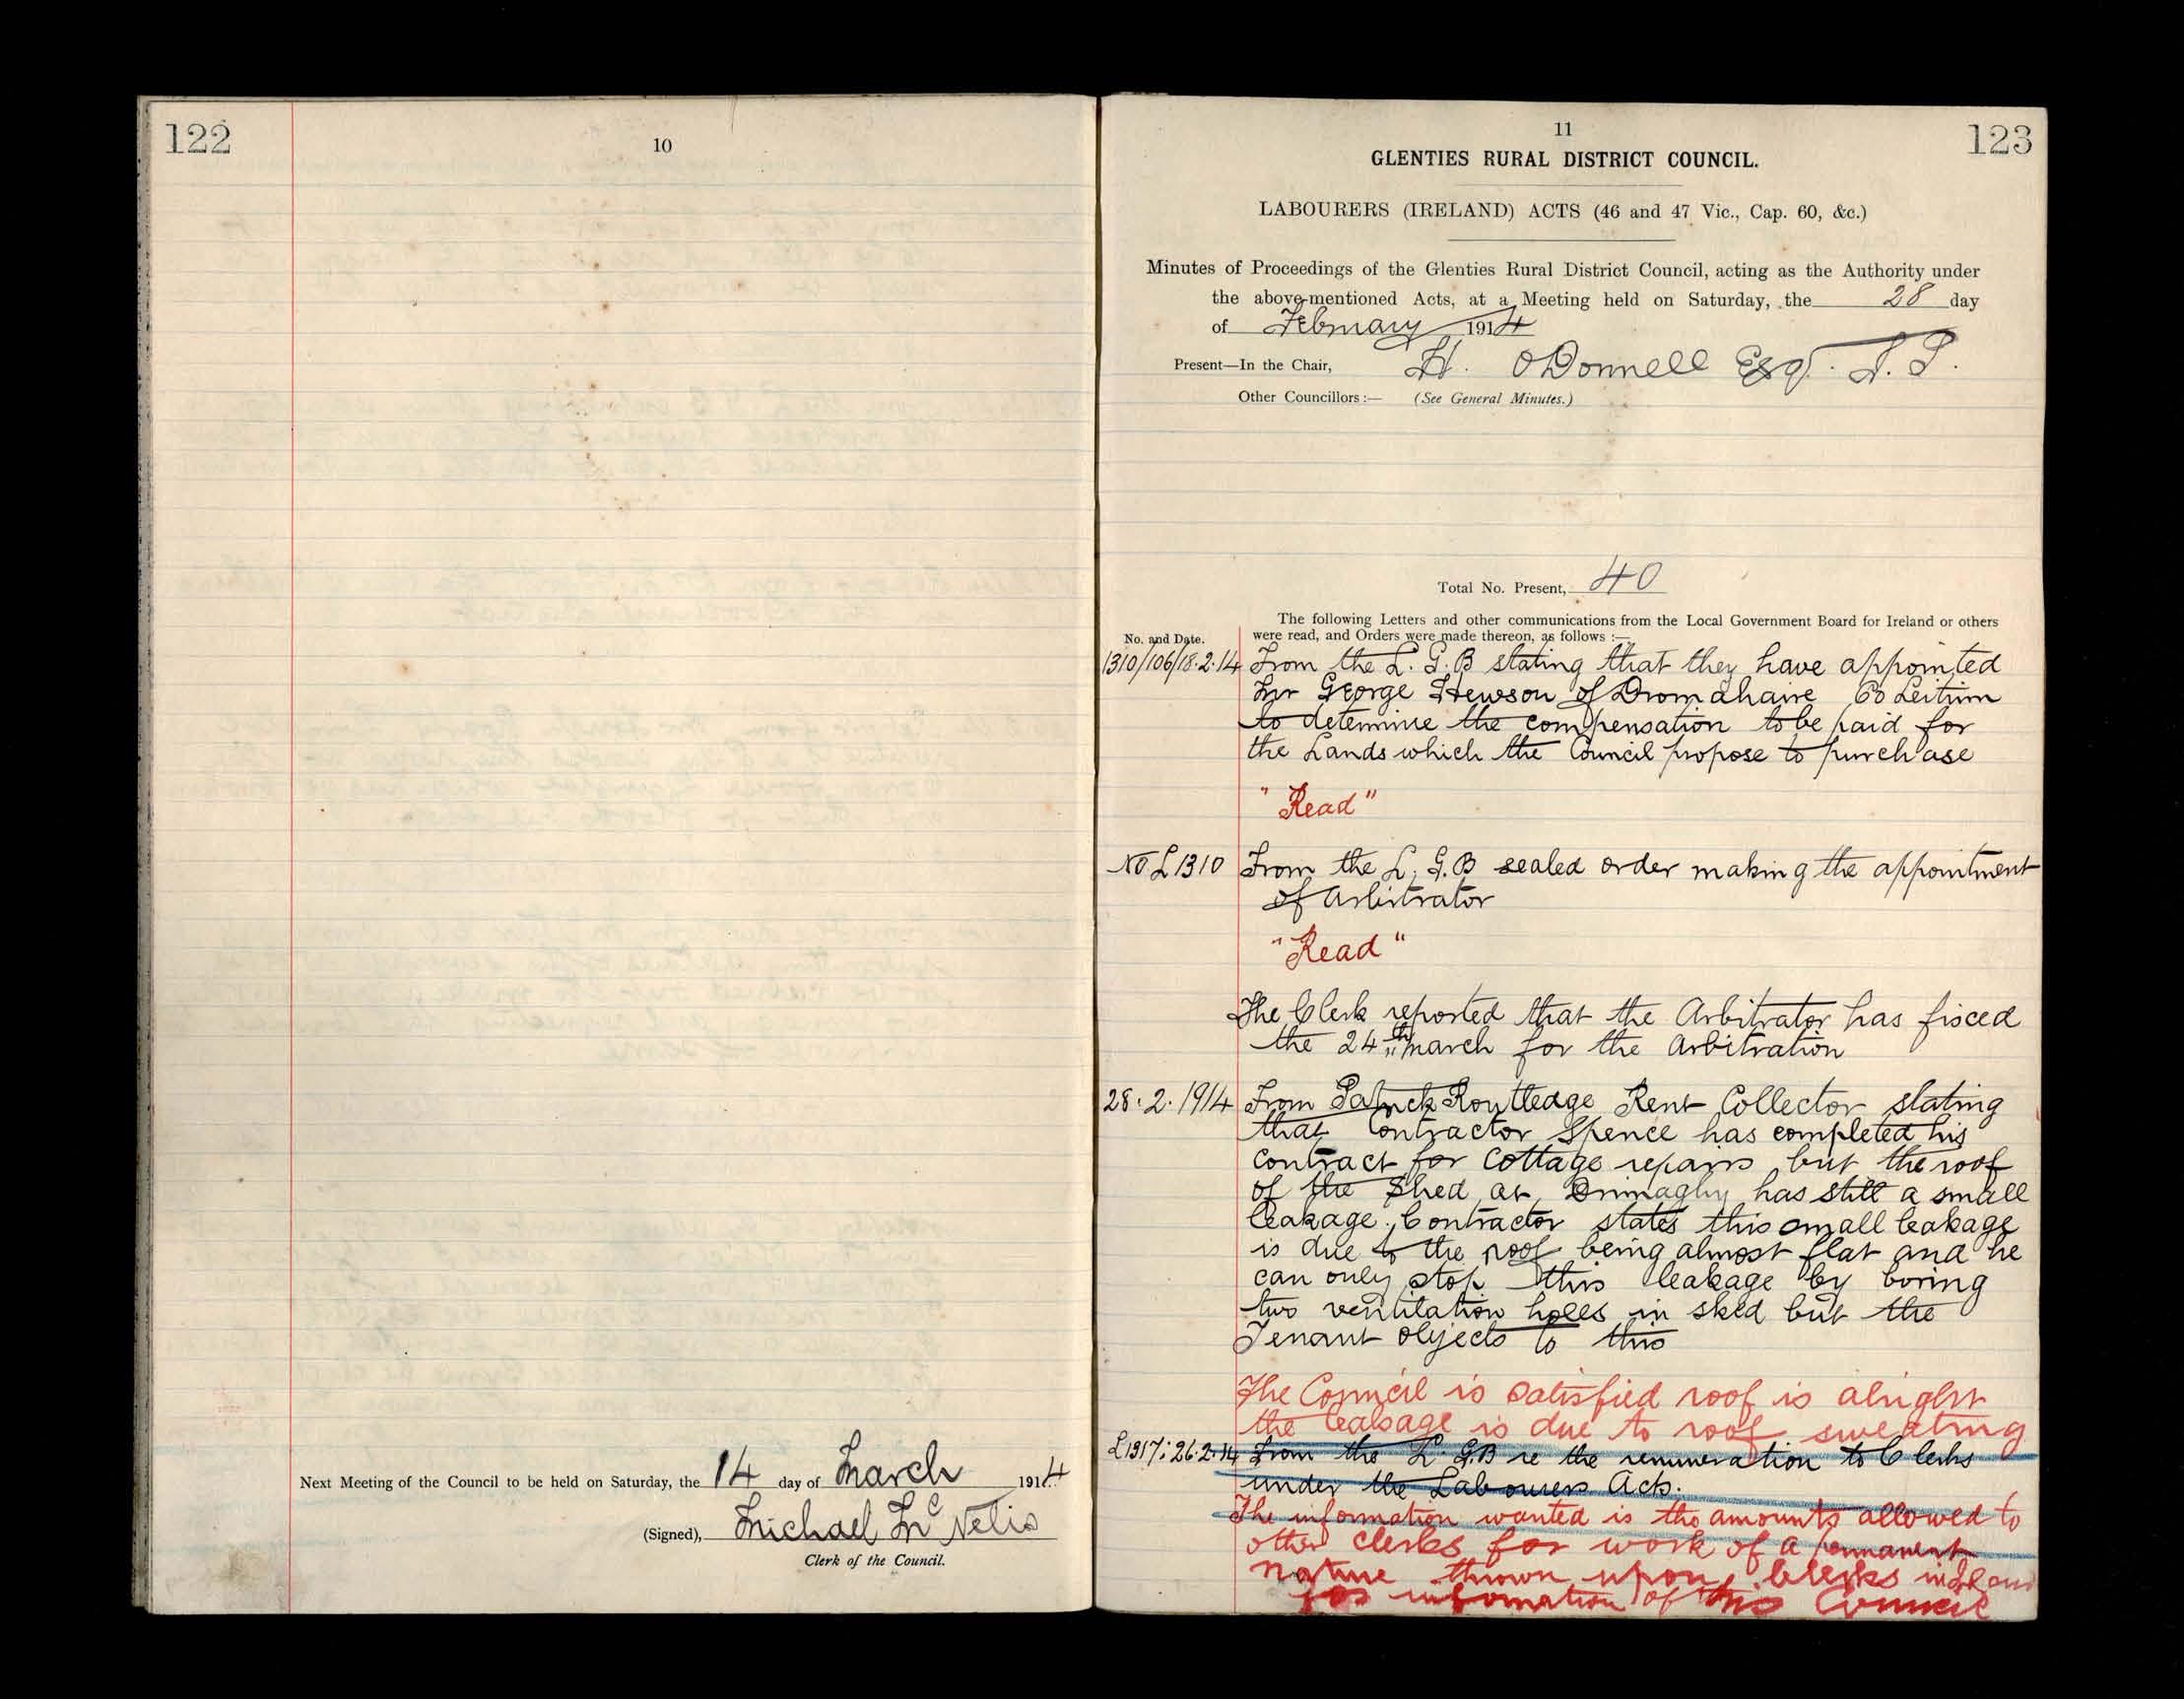 122
10
Next Meeting of the Council to be held on Saturday, the 14 day of March 1914
(Signed), Michael McNelis
Clerk of the Council.
11
123
GLENTIES RURAL DISTRICT COUNCIL.
LABOURERS (IRELAND) ACTS (46 and 47 Vic., Cap. 60, &c.)
Minutes of Proceedings of the Glenties Rural District Council, acting as the Authority under
the above-mentioned Acts, at a Meeting held on Saturday, the 28 day
of February 1914
Present—In the Chair, H. O'Donnell Esq. J.P.
Other Councillors:— (See General Minutes.)
Total No. Present, 40
The following Letters and other communications from the Local Government Board for Ireland or others
No. and Date. were read, and Orders were made thereon, as follows:—
1310/106/18.2.14 From the L.G.B stating that they have appointed
Mr George Hewson of Dromahaire Co Leitrim
to determine the compensation to be paid for
the Lands which the Council propose to purchase
"Read"
No. L1310 From the L.G.B sealed order making the appointment
of Arbitrator
"Read"
The Clerk reported that the Arbitrator has fixed
the 24th March for the Arbitration
28.2.1914 From Patrick Routledge Rent Collector stating
that Contractor Spence has completed his
contract for Cottage repairs but the roof
of the Shed at has still a small
leakage. Contractor states this small leakage
is due to the roof being almost flat and he
can only stop this leakage by boring
two ventilation holes in shed but the
Tenant objects to this
The Council is satisfied roof is alright
the leakage is due to roof sweating
L1317: 26.2.14 From the L.G.B re the remuneration to Clerks
under the Labourers Acts.
The information wanted is the amounts allowed to
other clerks for work of a permanent
nature thrown upon Clerks
for information of this Council